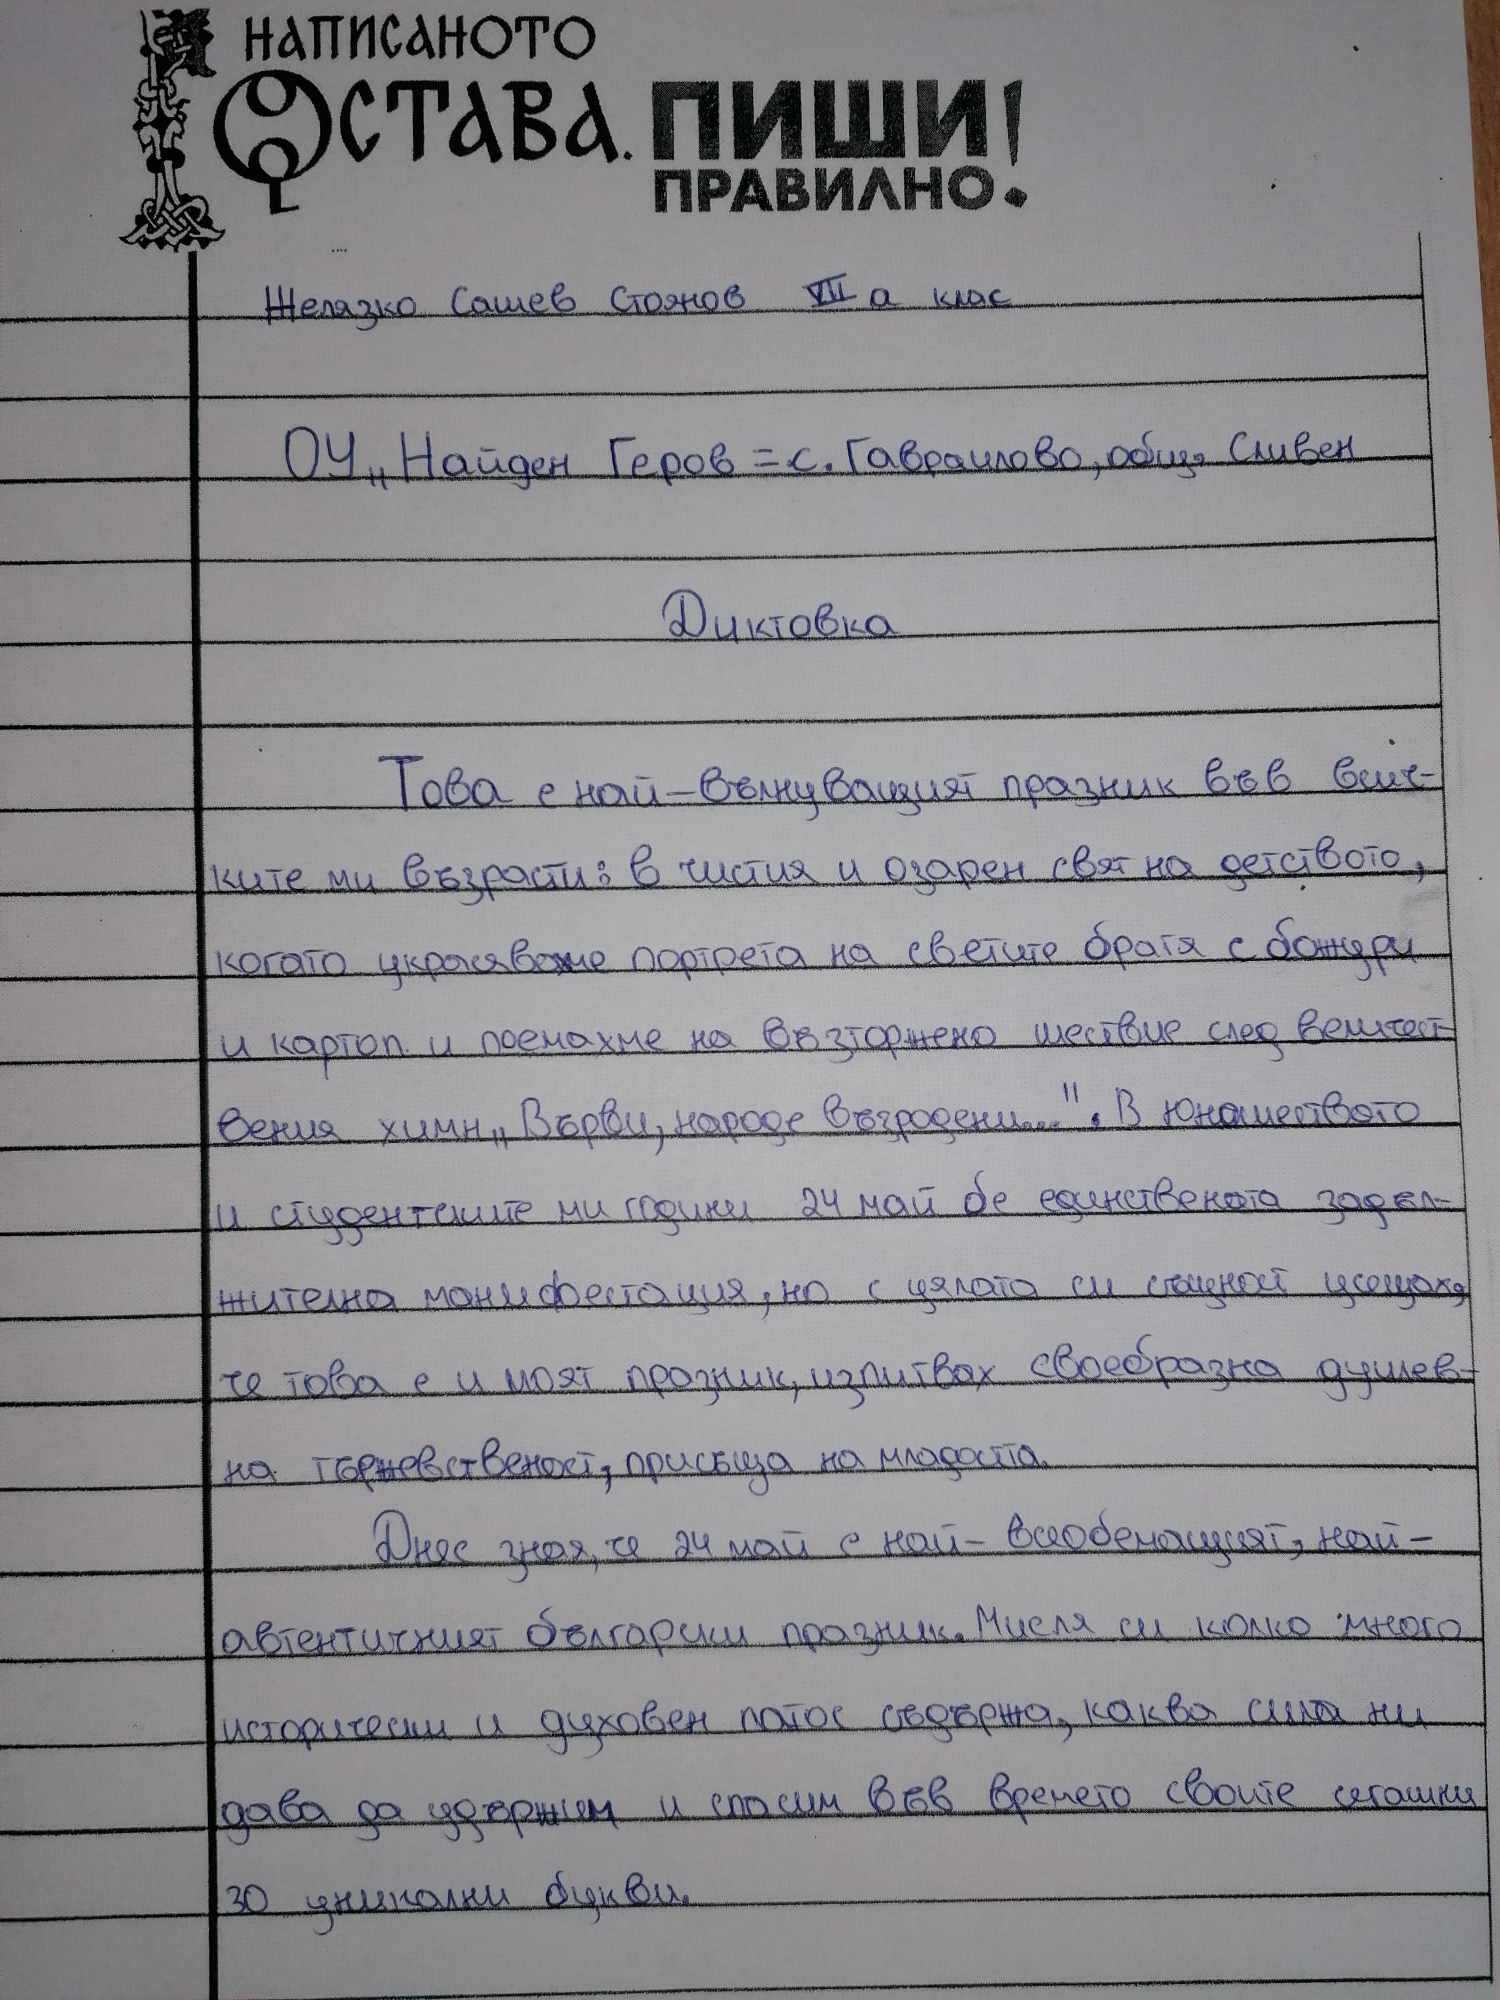 НАПИСАНОТО
ОСТАВА. ПИШИ
ПРАВИЛНО!
Желязко Сашев Стоянов VII а клас
ОУ „Найден Геров = с. Гавраилово, общ. Сливен
Диктовка
Това е най-вълнуващият празник във всич-
ките ми възрасти: в чистия и озарен свят на детството,
когато украсявахме портрета на светите братя с божури
и картоп и поемахме на възторжено шествие след величест-
вения химн „Върви, народе възродени...". В юношеството
и студентските ми години 24 май бе единствената задъл-
жителна манифестация, но с цялата си същност усещах,
че това е и моят празник, изпитвах своеобразна душев-
на тържевственост, присъща на младостта.
Днес зная, че 24 май е най-всеобемащият, най-
автентичният български празник. Мисля си колко много
исторически и духовен патос съдържа, каква сила ни
дава да удържим и спасим във времето своите сегашни
30 уникални букви.